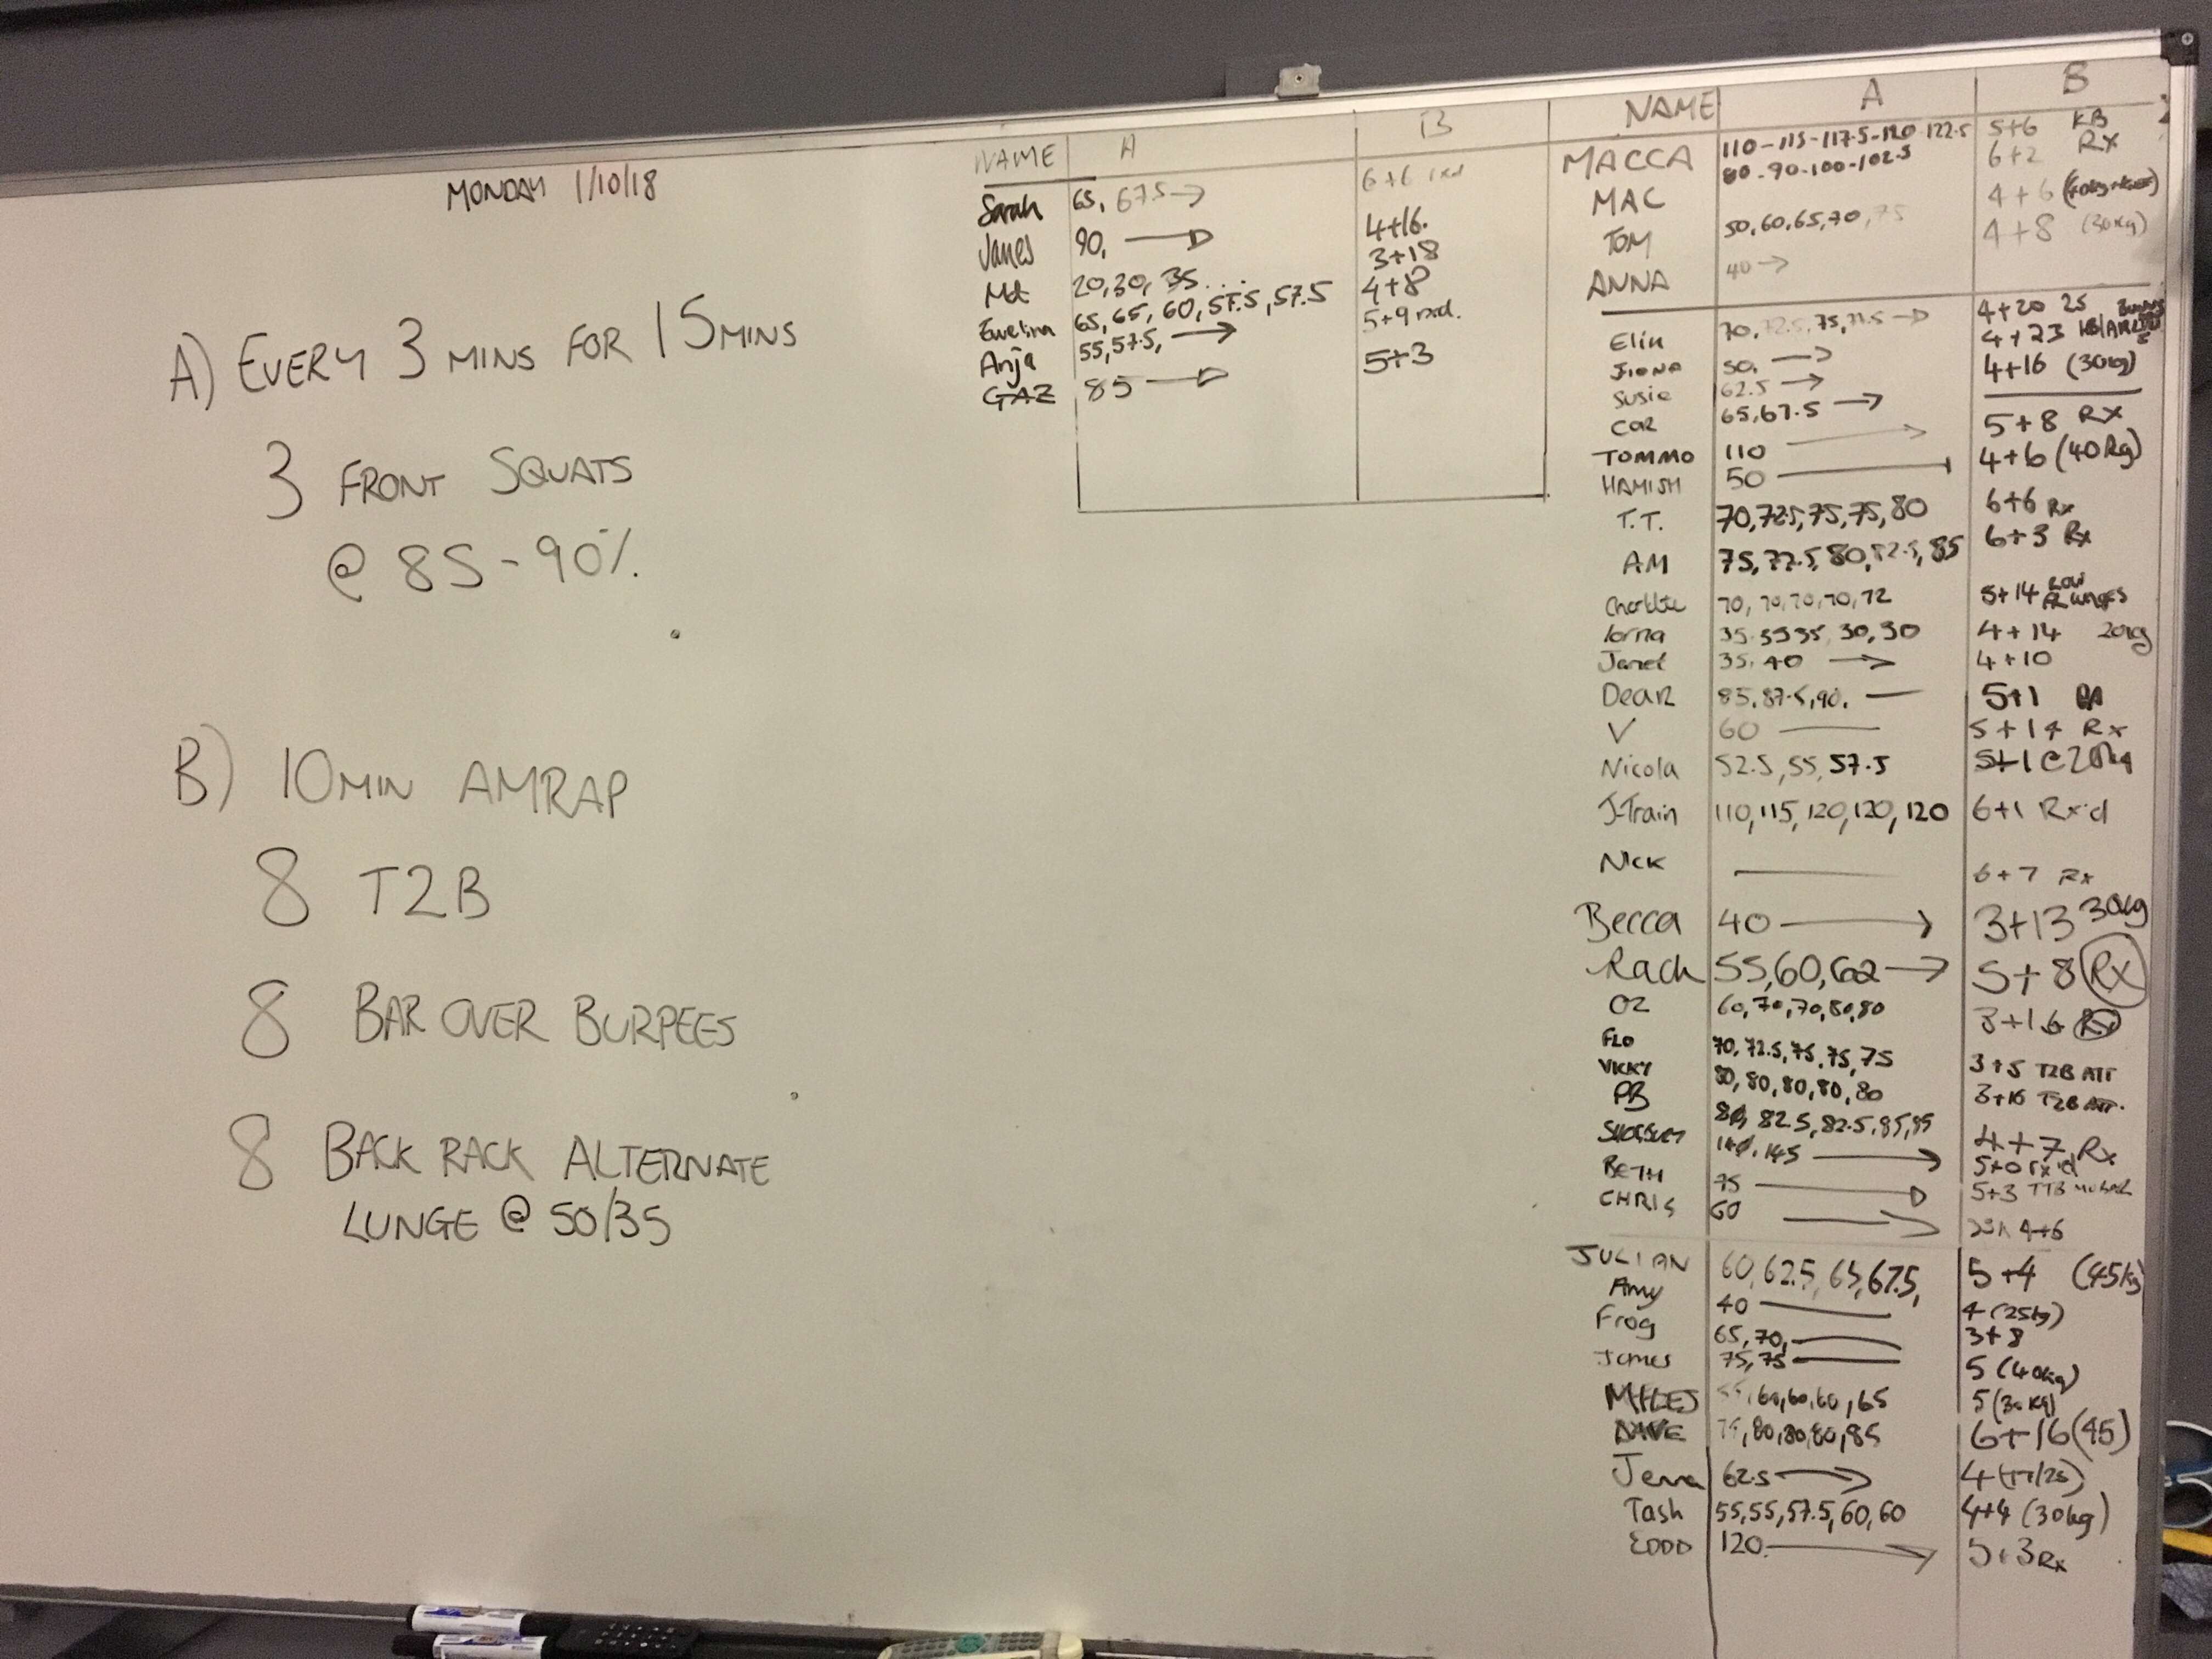 MONDAY 1/10/18
A) EVERY 3 MINS FOR 15 MINS
3 FRONT SQUATS
@ 85-90%
B) 10 MIN AMRAP
8 T2B
8 BAR OVER BURPEES
8 BACK RACK ALTERNATE
LUNGE @ 50/35
NAME A B
Sarah 65, 67.5 → 6+6 rxd
James 90, → 4+16.
20,30, 35.... 3+18
Ewelina 65, 65, 60, 57.5, 57.5 4+8
Anja 55, 57.5, → 5+9 rxd.
GAZ 85 → 5+3
NAME A B
MACCA 110-115-117.5-120-122.5 5+6 KB
MAC 80-90-100-102.5 6+2 RX
TOM 50,60,65,70,75 4+6
ANNA 40 → 4+8 (30kg)
Elin 70, 72.5, 75, → 4+20 25
FIONA 50. → 4+23
Susie 62.5 → 4+16 (30kg)
CAR 65,67.5 →
TOMMO 110 → 5+8 RX
HAMISH 50 4+6 (40kg)
T.T. 70,72.5,75,75,80 6+6 Rx
AM 75, 77.5, 80, 82.5, 85 6+3 Rx
Charlotte 70, 70, 70, 70, 72 5+14
lorna 35 35 35, 30, 30 4+14 20kg
Janet 35, 40 → 4+10
Dean 85, 87.5, 90. — 5+1
V 60 — 5+14 Rx
Nicola 52.5, 55, 57.5 5+1 @ 20kg
J-Train 110, 115, 120, 120, 120 6+1 Rx'd
NICK — 6+7 Rx
Becca 40 → 3+13 30kg
Rach 55,60,62 → 5+8 Rx
OZ 60,70,70,80,80 3+16 Rx
FLO 70, 72.5, 75, 75, 75
VICKY 80, 80, 80, 80, 80 3+5 T2B ATT
PB 80, 82.5, 82.5, 85, 85 3+16 T2B ATT.
140, 145 → 4+7 Rx
BETH 75 → 5+0 rx'd
CHRIS 60 → 5+3 TTB
4+6
JULIAN 60, 62.5, 65, 67.5, 5+4 (45kg)
Amy 40 — 4 (25kg)
Frog 65, 70, — 3+8
James 75, 75 — 5 (40kg)
MILES 55, 60, 60, 60, 65 5 (30kg)
DAVE 75, 80, 80, 80, 85 6+16 (45)
Jenna 62.5 → 4
Tash 55, 55, 57.5, 60, 60 4+4 (30kg)
120. → 5+3 Rx